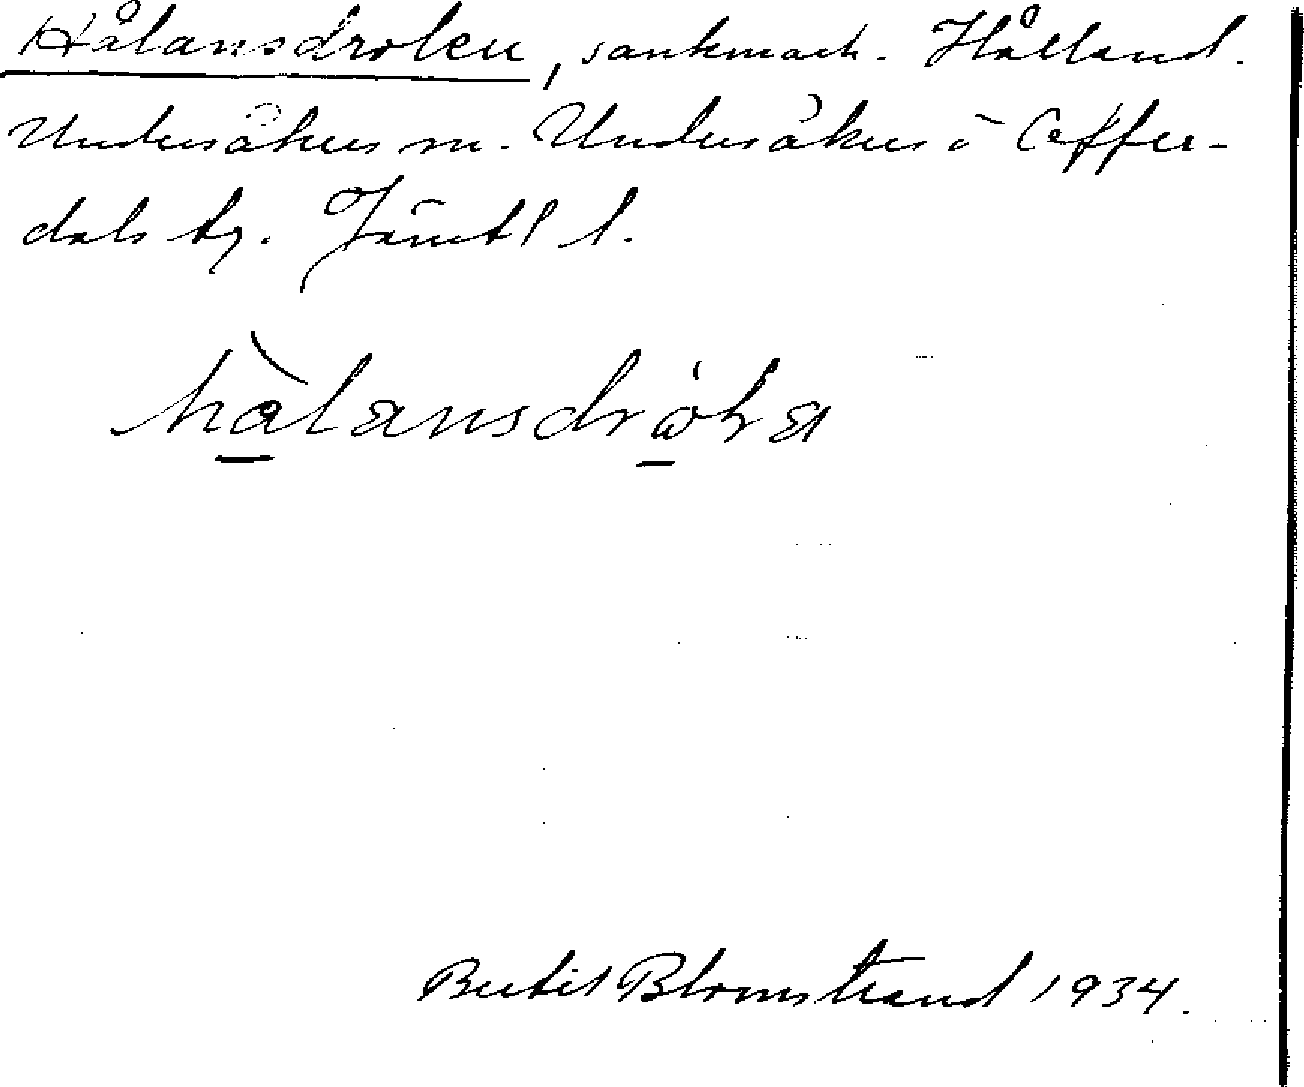 Hålansdrolen, sankmark. Hålland.
Undersåkers sn. Undersåkers o Offer-
dals tg. Jämtl l.
Bertil Blomstrand 1934.